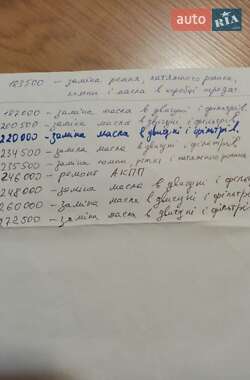 AUTO RIA
183500 – заміна ременя, натяжного ролика,
помпи і масла в коробці передач
187000 – заміна масла в двигуні і фільтрів
200500 – заміна масла в двигуні і фільтрів
220000 – заміна масла в двигуні і фільтрів
234500 – заміна масла в двигуні і фільтрів
235500 – заміна помпи, ременя і натяжного ролика
246000 – ремонт АКПП
248000 – заміна масла в двигуні і фільтрів
260000 – заміна масла в двигуні і фільтрів
272500 – заміна масла в двигуні і фільтрів